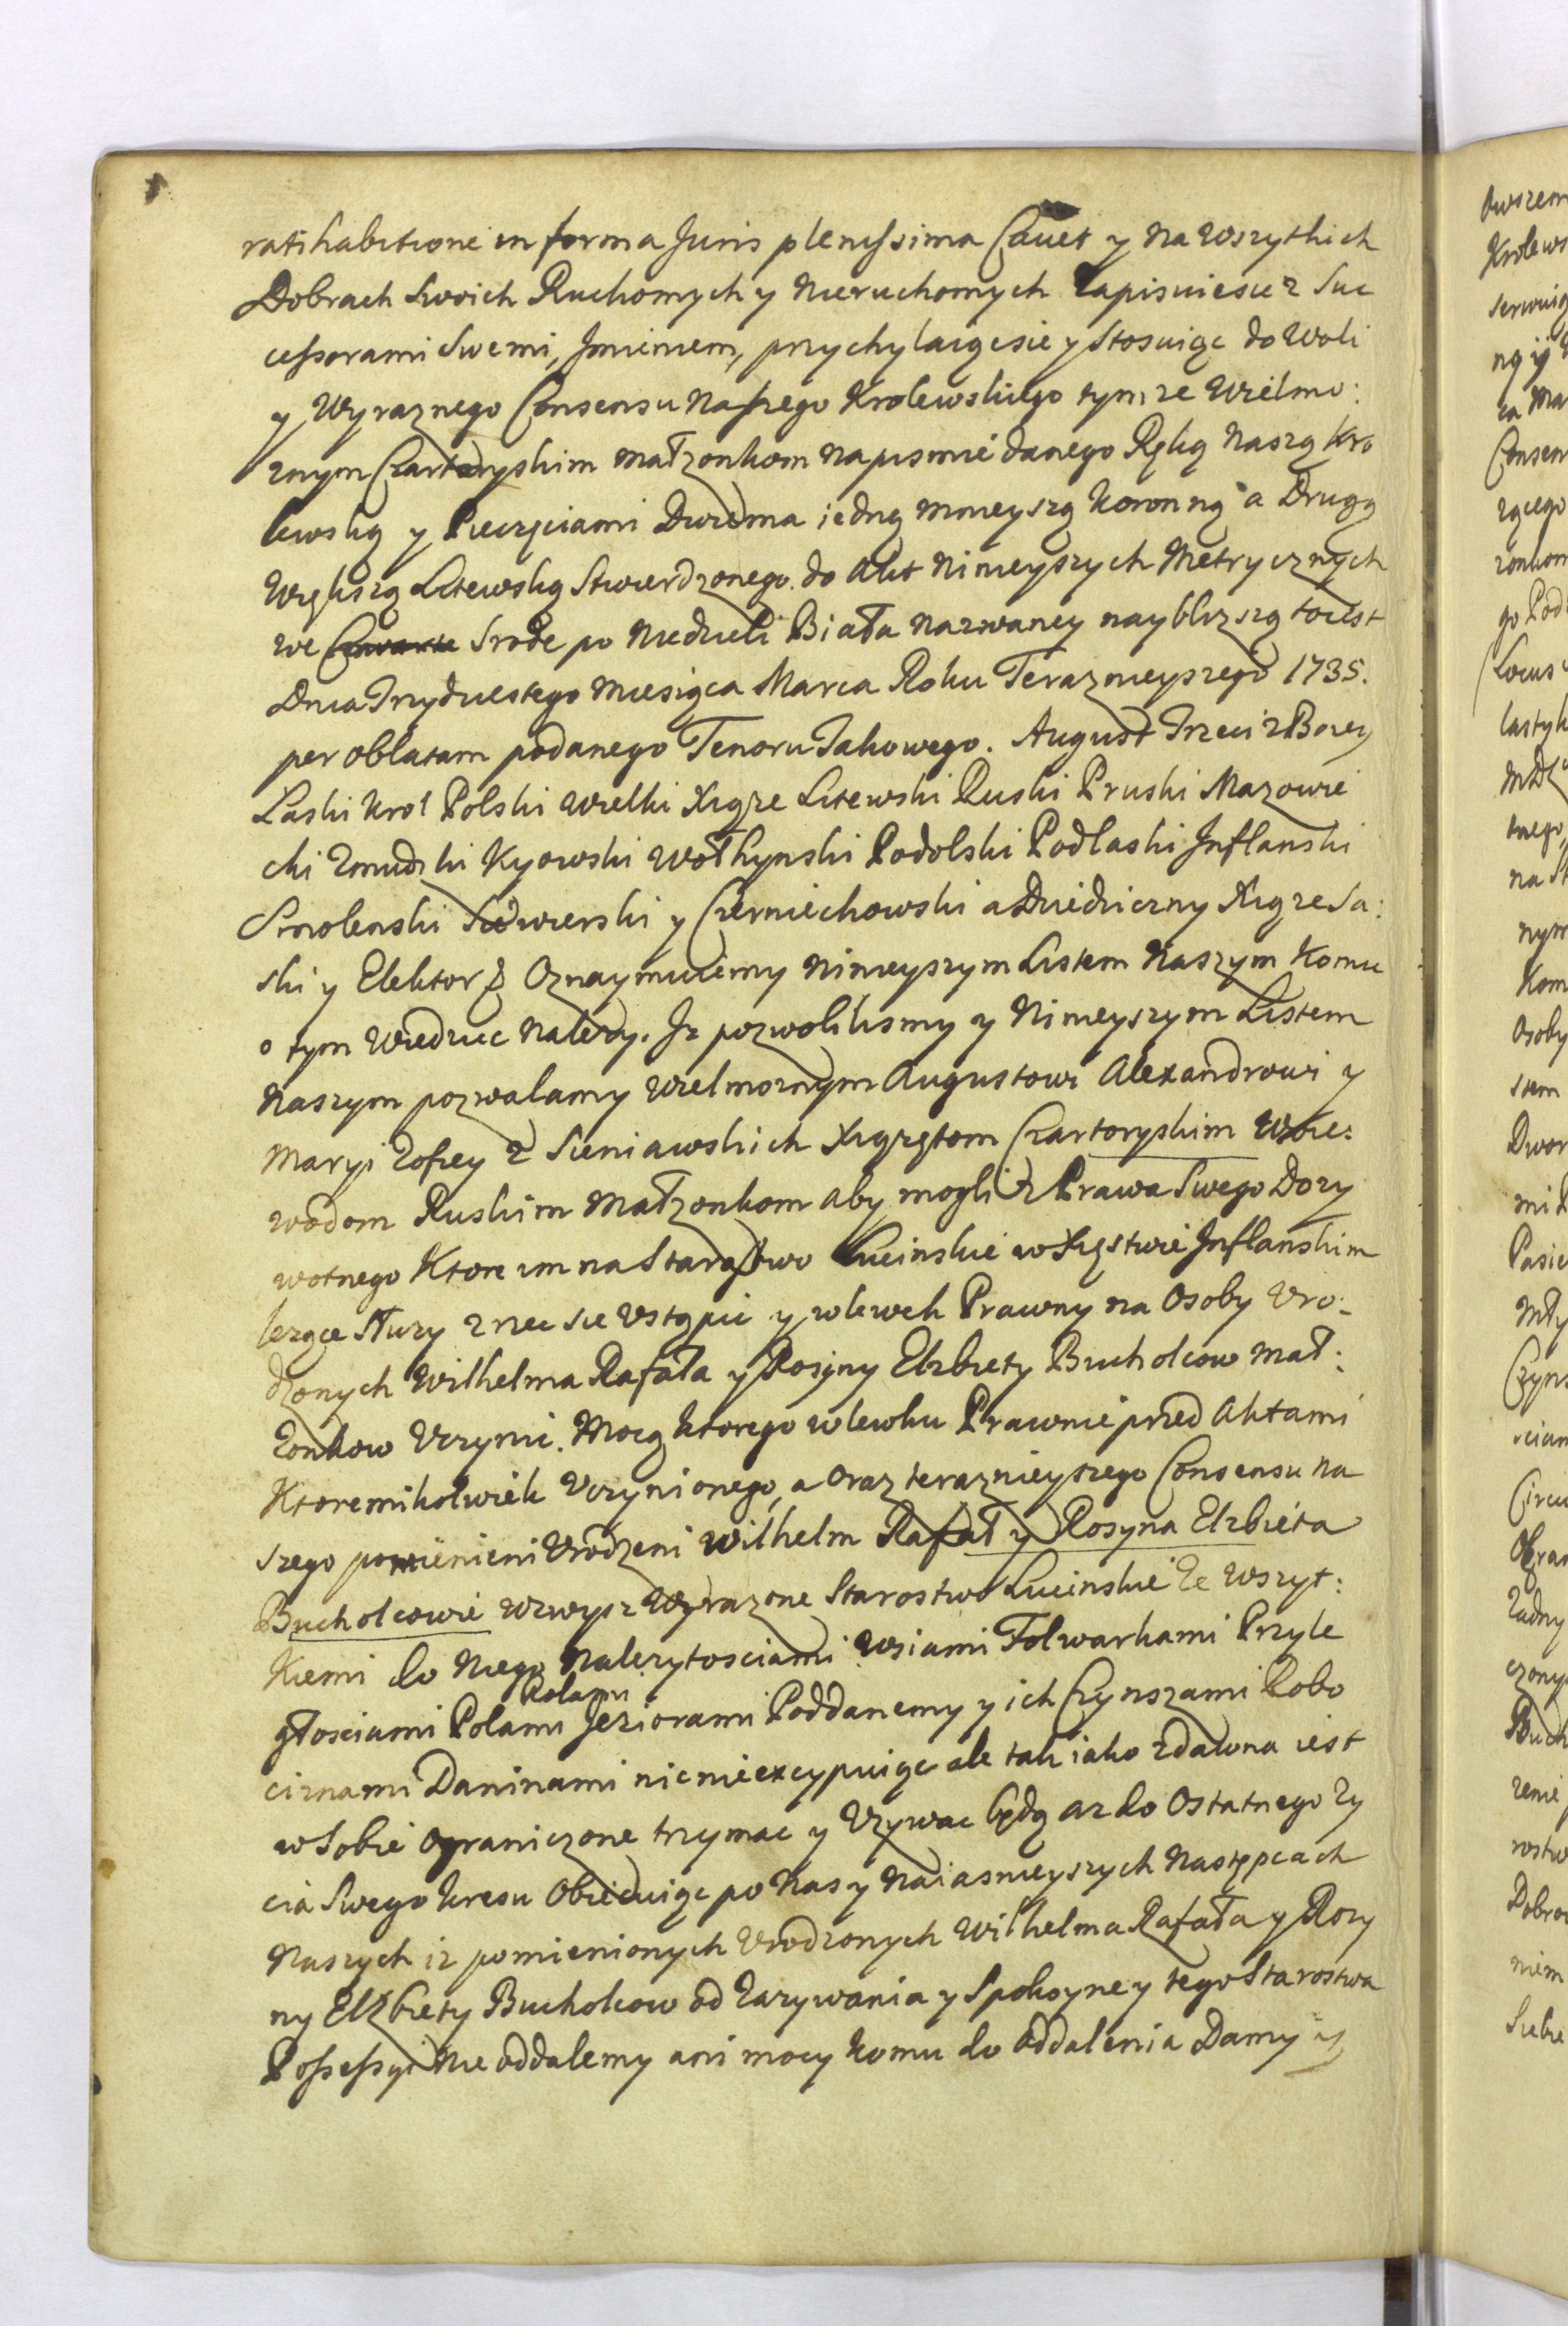 ratihabitione in forma Juris plenissima Cauet y na Wszytkich
Dobrach Swoich Ruchomych y Nieruchomych Zapisuiesie z Suc
cessorami Swemi, Jmieniem, przychylaiąc sie y Stosuiąc do Woli
y Wyraznego Consensu Naszego Krolewskiego tymze Wielmo:
znym Czartoryskim Małzonkom na pismie danego Ręką Naszą Kro
lewską y Pieczęciami Dwiema iedną mnieyszą Koronną a Drugą
Większą Litewską Stwierdzonego. do Akt Ninieyszych Metrycznych
we Srode po Niedzieli Biała Nazwaney nayblizszą toiest
Dnia Trzydziestego Miesiąca Marca Roku Teraznieyszego 1735.
per oblatam podanego Tenoru Takowego. August Trzeci z Bozey
Łaski Krol Polski Wielki Xiąze Litewski Ruski Pruski Mazowie
cki Zmudzki Kyowski Wołhynski Podolski Podlaski Inflanski
Smolenski Siewierski y Czerniechowski a Dziedziczny Xiąze Sa:
ski y Elektor & Oznaymuiemy Ninieyszym Listem Naszym Komu
o tym Wiedziec Nalezy. Iz pozwolilismy y Ninieyszym Listem
Naszym pozwalamy Wielmoznym Augustowi Alexandrowi y
Maryi Zofiey z Sieniawskich Xiązętom Czartoryskim Woie:
wodom Ruskim Małzonkom aby mogli z Prawa Swego Dozy
wotnego Ktore im na Starostwo Lucinskie w Xięstwie Inflanskim
lezące słuzy zrzec sie Ustąpic y wlewek Prawny na Osoby Uro:
dzonych Wilhelma Rafała y Rosyny Elzbiety Bucholcow Mał:
zonkow Uczynic. Mocą ktorego wlewku Prawnie przed Aktami
Ktoremikolwiek Uczynionego, a oraz teraznieyszego Consensu Na
szego pomienieni Urodzeni Wilhelm Rafał y Rosyna Elzbieta
Bucholcowie wzwysz Wyrazone Starostwo Lucinskie Ze Wszyt:
Kiemi do Niego Nalezytosciami Wsiami Folwarkami Przyle
Rolami
głosciami Polami Jeziorami Poddanemy y ich Czynszami Robo
ciznami Daninami nic nie excypuiąc ale tak iako zdawna iest
w Sobie Ograniczone trzymac y Uzywac będą az do Ostatnego Zy
cia Swego kresu Obiecuiąc po Nas y Naiasnieyszych Następcach
Naszych iz pomienionych Urodzonych Wilhelma Rafała y Rozy
ny Elzbiety Bucholcow od Zazywania y Spokoyney tego Starostwa
Possessyi Nie oddalemy ani mocy komu do oddalenia Damy y